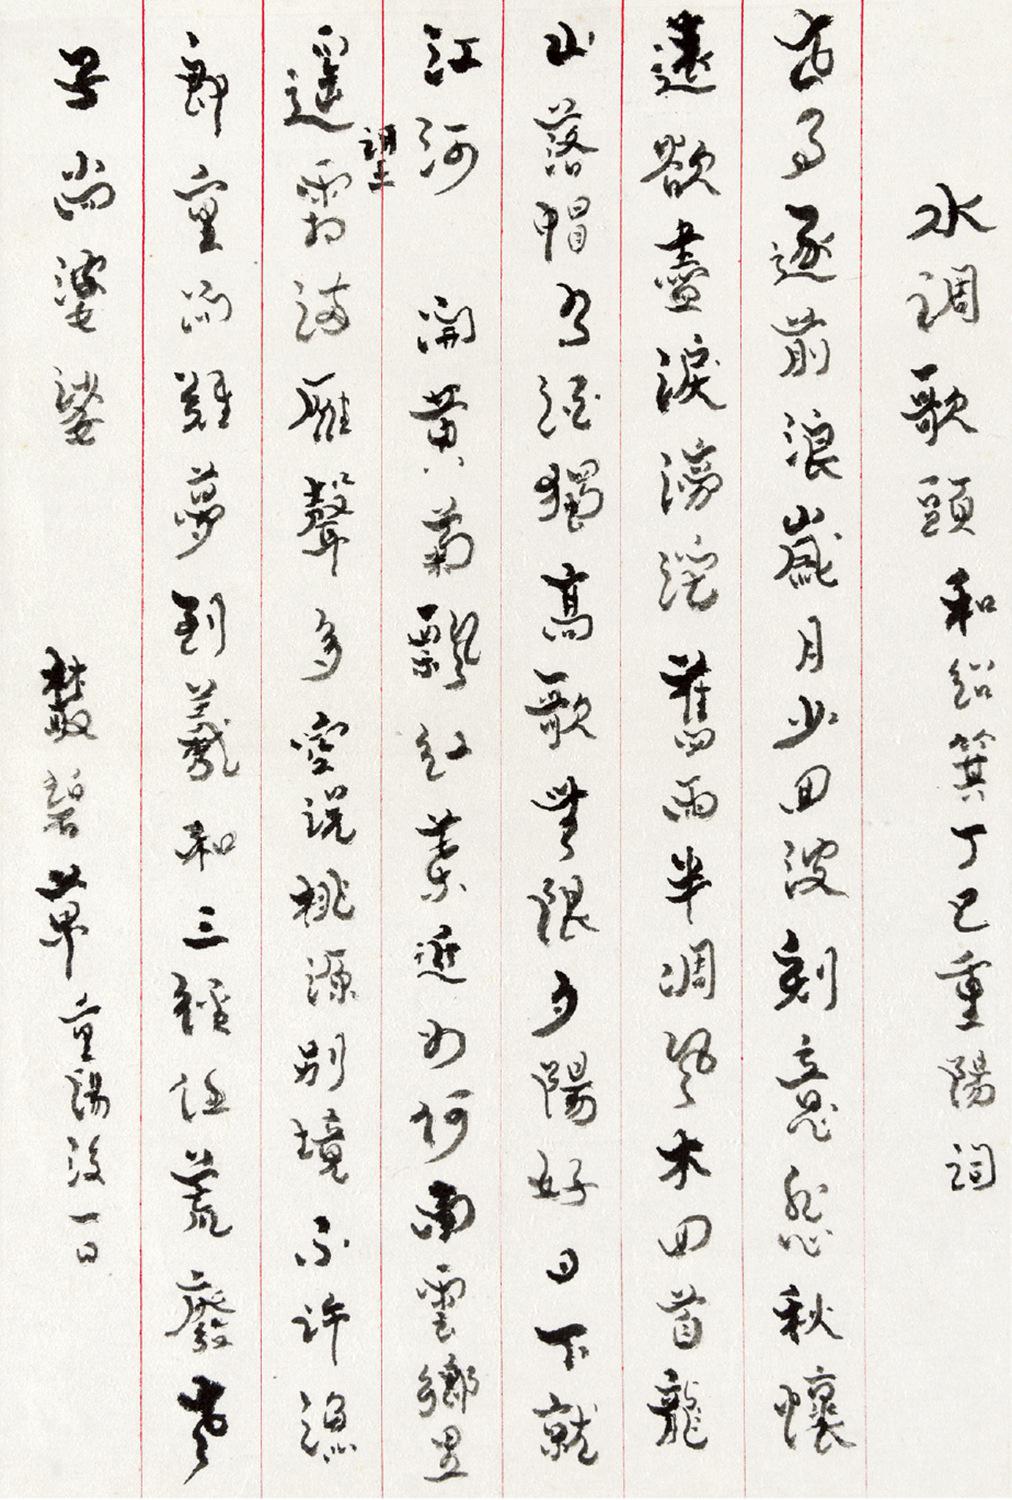 水調歌頭 和紹箕丁巳重陽詞
去日逐前浪歲月少回波刻意悲秋懷
遠欲盡淚滂沱舊雨半凋風木回首龍
山落帽有酒獨高歌無限夕陽好日下就
江河 開黃菊飄紅葉近如何南雲鄉里
遙望霜滿雁聲多空說桃源別境不許漁
郎重問難夢到羲和三徑任荒廢老
子尚婆娑
叢碧草重陽後一日